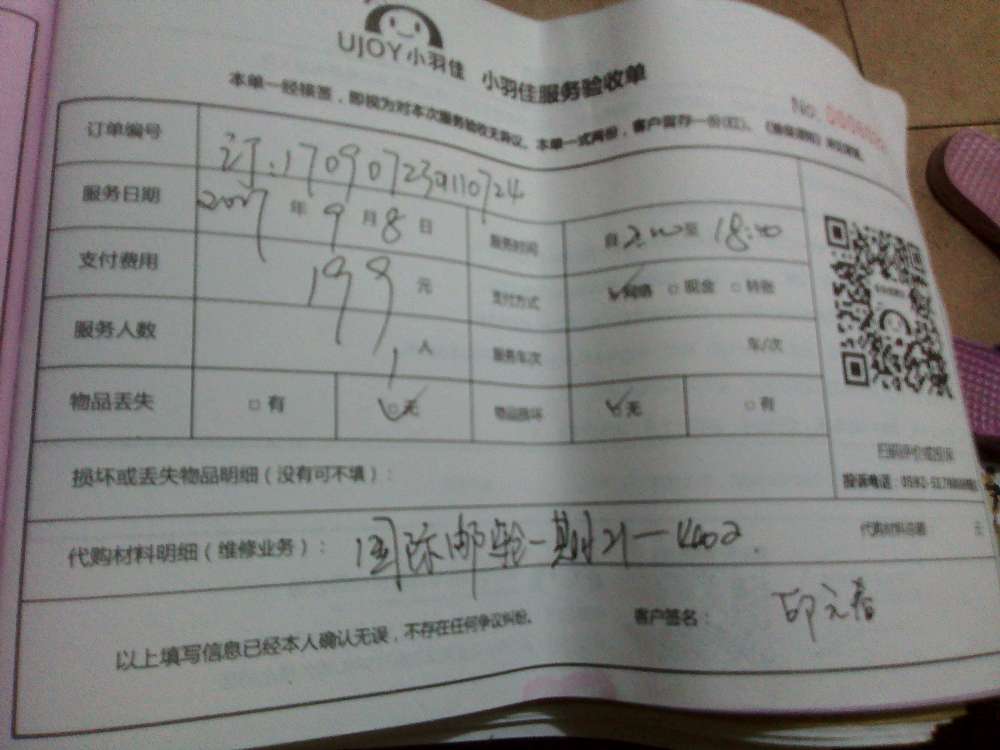 UJOY小羽佳 小羽佳服务验收单
NO.
本单一经接签，即视为对本次服务验收无异议。本单一式两份，客户留存一份(红)。
订单编号 订:170907239110724
服务日期 2017年9月8日 服务时间 自2:00至18:00
支付费用 199元 支付方式 ☑网络 □现金 □转账
服务人数 1人 服务车次 车/次
物品丢失 □有 ☑无 物品损坏 ☑无 □有
损坏或丢失物品明细（没有可不填）：
扫码评价或投诉
投诉电话：0592-
代购材料明细（维修业务）： 国际邮轮一期21-4402. 代购材料总额 元
以上填写信息已经本人确认无误，不存在任何争议纠纷。 客户签名：